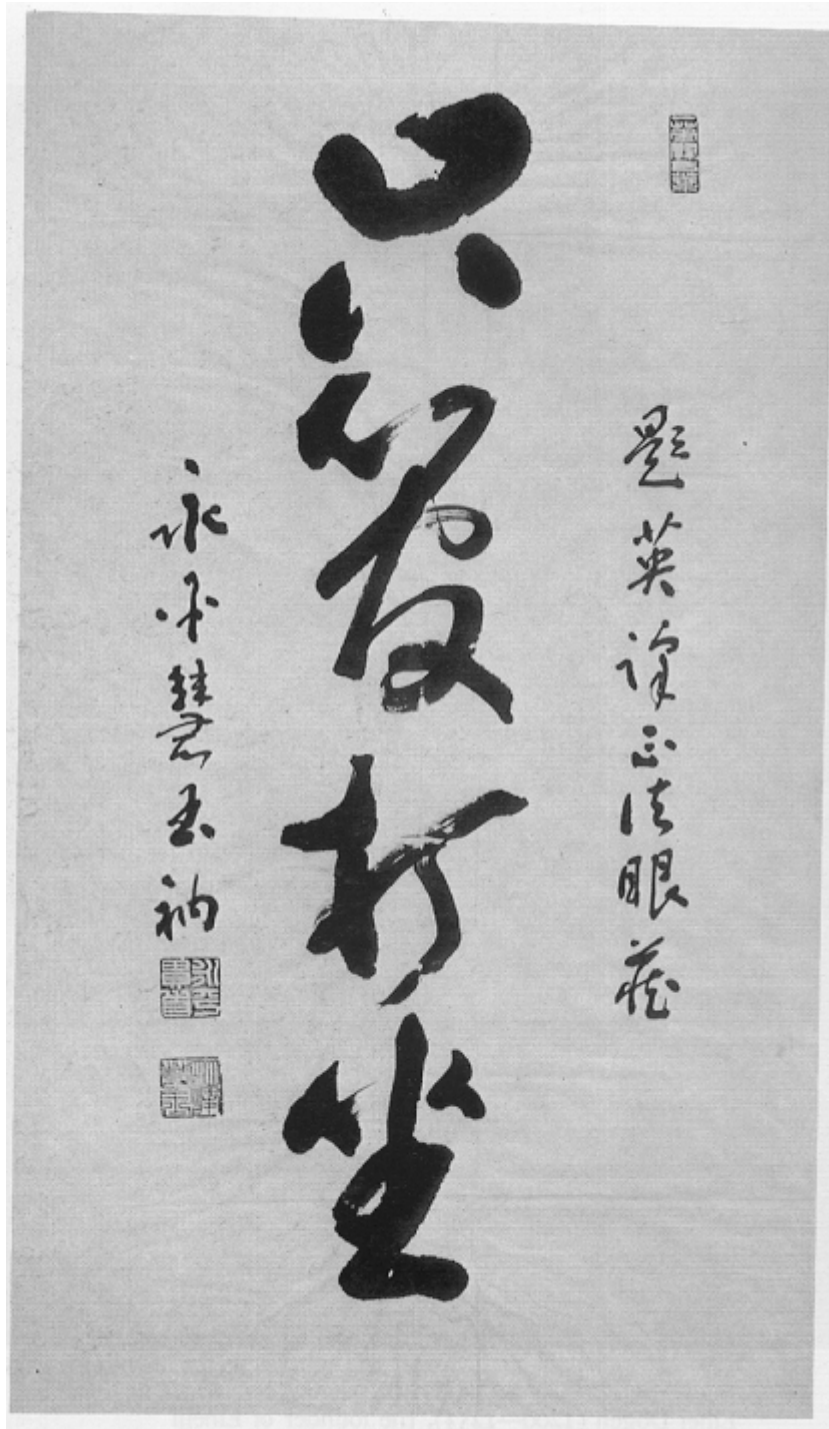 題英譯正法眼蔵
只管打坐
永平慧玉衲